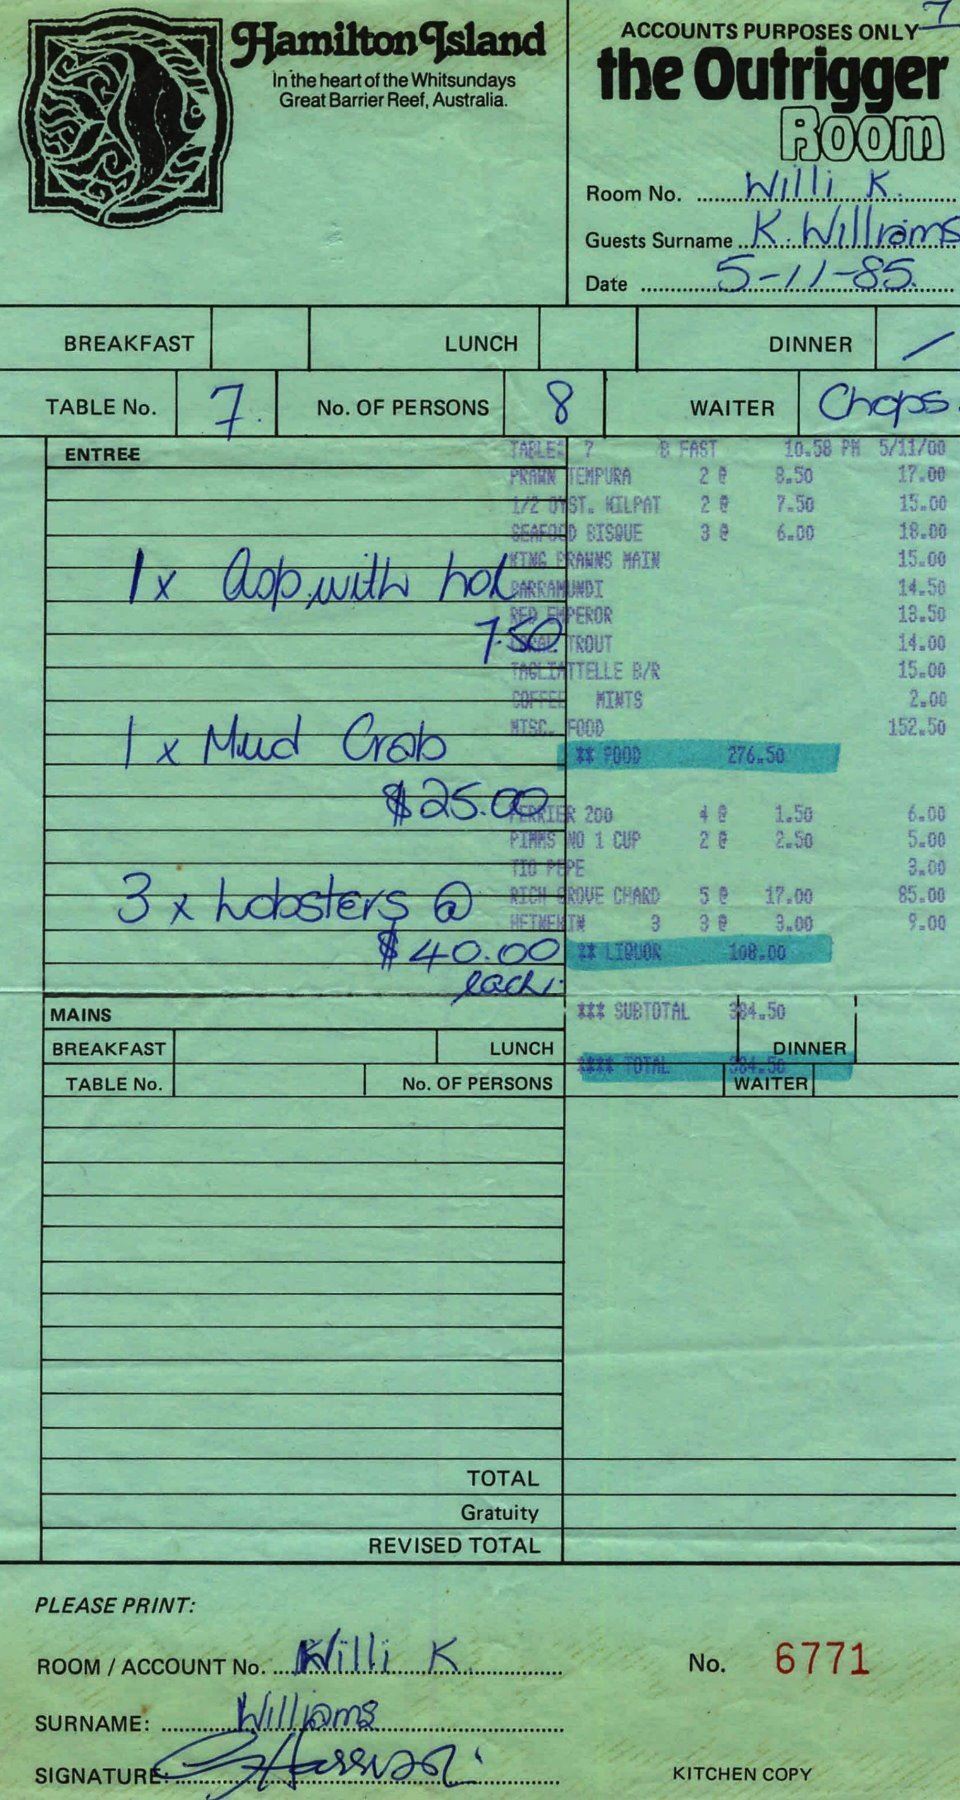 7
Hamilton Island
In the heart of the Whitsundays
Great Barrier Reef, Australia.
ACCOUNTS PURPOSES ONLY
the Outrigger
Room
Room No. Willi K.
Guests Surname K. Williams
Date 5-11-85.
BREAKFAST LUNCH DINNER /
TABLE No. 7. No. OF PERSONS 8 WAITER Chops.
ENTREE
TABLE: 7 B FAST 10.58 PM 5/11/00
PRAWN TEMPURA 2 @ 8.50 17.00
1/2 OYST. KILPAT 2 @ 7.50 15.00
SEAFOOD BISQUE 3 @ 6.00 18.00
KING PRAWNS MAIN 15.00
BARRAMUNDI 14.50
RED EMPEROR 13.50
CORAL TROUT 14.00
TAGLIATTELLE B/R 15.00
COFFEE MINTS 2.00
MISC. FOOD 152.50
** FOOD 276.50
PERRIER 200 4 @ 1.50 6.00
PIMMS NO 1 CUP 2 @ 2.50 5.00
TIO PEPE 3.00
RICH GROVE CHARD 5 @ 17.00 85.00
3 3 @ 3.00 9.00
** LIQUOR 108.00
*** SUBTOTAL 384.50
**** TOTAL 384.50
1 x Asp with hol
7.50
1 x Mud Crab
$25.00
3 x Lobsters @
$40.00
each.
MAINS
BREAKFAST LUNCH DINNER
TABLE No. No. OF PERSONS WAITER
TOTAL
Gratuity
REVISED TOTAL
PLEASE PRINT:
ROOM / ACCOUNT No. Willi K.
No. 6771
SURNAME: Williams
SIGNATURE: G Harrison
KITCHEN COPY